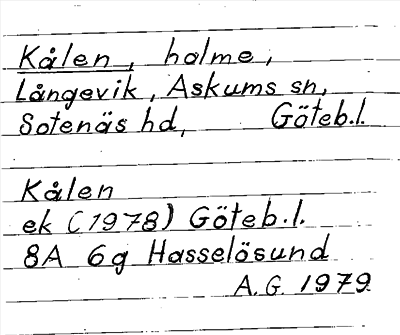 Kålen, holme,
Långevik, Askums sn,
Sotenäs hd, Göteb.l.
Kålen
ek (1978) Göteb.l.
8A 6g Hasselösund
A.G. 1979